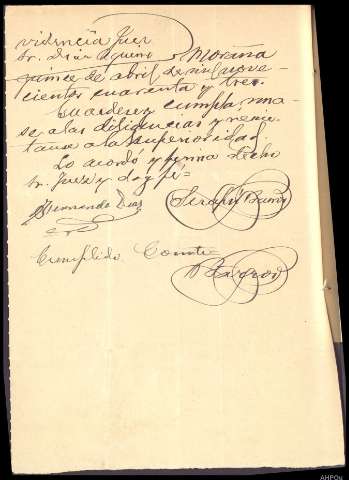 videncia Juez
Sr. Dias Aguero Moraña
quince de abril de mil nove-
cientos cuarenta y tres.
Guardese y cumpla, una-
se a las diligencias y remi-
tanse a la superioridad
Lo acordó y firma dicho
Sr. Juez y doy fé=
Hernando Dias
Cumplido Conste
AHPOu